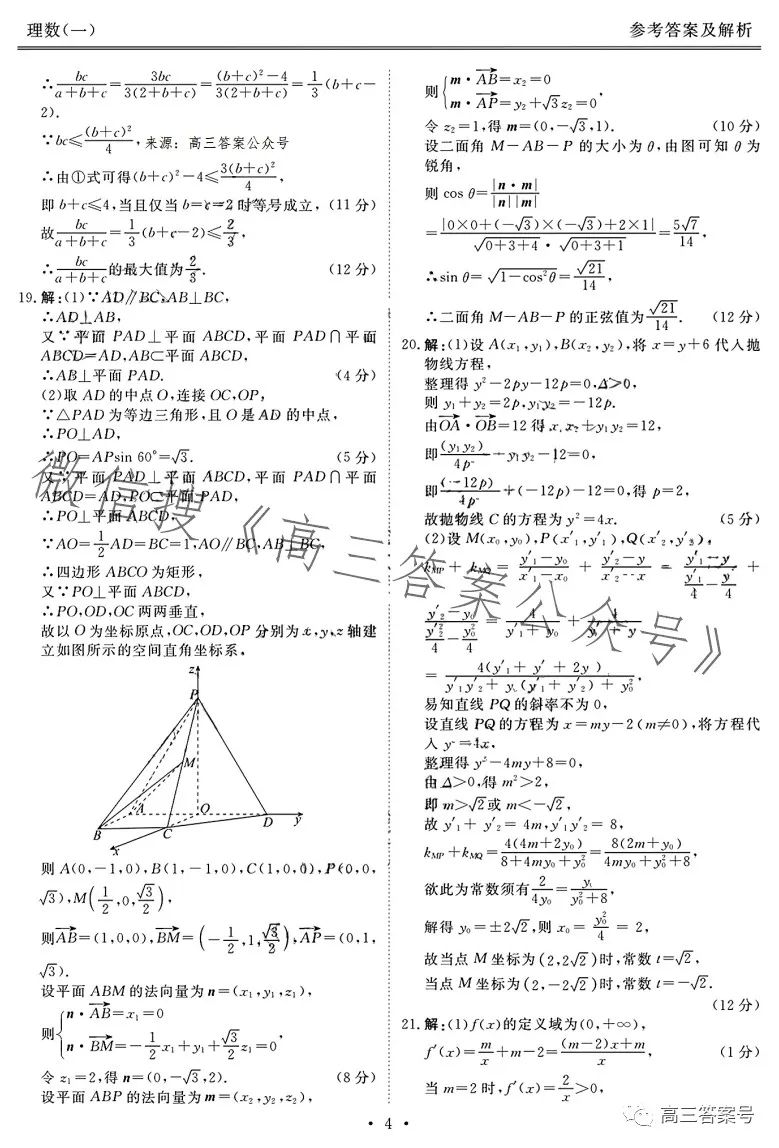 理数(一)
参考答案及解析
∴bc/(a+b+c)=3bc/(3(2+b+c))=((b+c)²-4)/(3(2+b+c))=1/3(b+c-
2).
∵bc≤(b+c)²/4,来源:高三答案公众号
∴由①式可得(b+c)²-4≤3(b+c)²/4,
即b+c≤4,当且仅当b=c=2时等号成立,(11分)
故bc/(a+b+c)=1/3(b+c-2)≤2/3,
∴bc/(a+b+c)的最大值为2/3. (12分)
19.解:(1)∵AD∥BC,AB⊥BC,
∴AD⊥AB,
又∵平面PAD⊥平面ABCD,平面PAD∩平面
ABCD=AD,AB⊂平面ABCD,
∴AB⊥平面PAD. (4分)
(2)取AD的中点O,连接OC,OP,
∵△PAD为等边三角形,且O是AD的中点,
∴PO⊥AD,
∴PO=APsin 60°=√3. (5分)
又∵平面PAD⊥平面ABCD,平面PAD∩平面
ABCD=AD,PO⊂平面PAD,
∴PO⊥平面ABCD,
∵AO=1/2AD=BC=1,AO∥BC,AB⊥BC,
∴四边形ABCO为矩形,
又∵PO⊥平面ABCD,
∴PO,OD,OC两两垂直,
故以O为坐标原点,OC,OD,OP分别为x,y,z轴建
立如图所示的空间直角坐标系,
z
P
M
A
O
D
y
B
C
x
则A(0,-1,0),B(1,-1,0),C(1,0,0),P(0,0,
√3),M(1/2,0,√3/2),
则AB→=(1,0,0),BM→=(-1/2,1,√3/2),AP→=(0,1,
√3).
设平面ABM的法向量为n=(x₁,y₁,z₁),
则{n·AB→=x₁=0
n·BM→=-1/2x₁+y₁+√3/2z₁=0,
令z₁=2,得n=(0,-√3,2). (8分)
设平面ABP的法向量为m=(x₂,y₂,z₂),
则{m·AB→=x₂=0
m·AP→=y₂+√3z₂=0,
令z₂=1,得m=(0,-√3,1). (10分)
设二面角M-AB-P的大小为θ,由图可知θ为
锐角,
则cos θ=|n·m|/(|n||m|)
=|0×0+(-√3)×(-√3)+2×1|/(√(0+3+4)·√(0+3+1))=5√7/14,
∴sin θ=√(1-cos²θ)=√21/14,
∴二面角M-AB-P的正弦值为√21/14. (12分)
20.解:(1)设A(x₁,y₁),B(x₂,y₂),将x=y+6代入抛
物线方程,
整理得y²-2py-12p=0,Δ>0,
则y₁+y₂=2p,y₁y₂=-12p.
由OA→·OB→=12得x₁x₂+y₁y₂=12,
即(y₁y₂)/4p²+y₁y₂-12=0,
即(-12p)/4p²+(-12p)-12=0,得p=2,
故抛物线C的方程为y²=4x. (5分)
(2)设M(x₀,y₀),P(x'₁,y'₁),Q(x'₂,y'₂),
k_MP+k_MQ=(y'₁-y₀)/(x'₁-x₀)+(y'₂-y)/(x'₂-x)=(y'₁-y)/(y'₁/4-y/4)+
(y'₂-y₀)/(y'₂²/4-y₀²/4)=4/(y'₁+y₀)+4/(y'+y)
=4(y'₁+y'+2y)/(y'₁y'₂+y₀(y'₁+y'₂)+y₀²),
易知直线PQ的斜率不为0,
设直线PQ的方程为x=my-2(m≠0),将方程代
入y²=4x,
整理得y²-4my+8=0,
由Δ>0,得m²>2,
即m>√2或m<-√2,
故y'₁+y'₂=4m,y'₁y'₂=8,
k_MP+k_MQ=4(4m+2y₀)/(8+4my₀+y₀²)=8(2m+y₀)/(4my₀+y₀²+8),
欲此为常数须有2/4y₀=y₀/(y₀²+8),
解得y₀=±2√2,则x₀=y₀²/4=2,
故当点M坐标为(2,2√2)时,常数t=√2,
当点M坐标为(2,-2√2)时,常数t=-√2.
(12分)
21.解:(1)f(x)的定义域为(0,+∞),
f'(x)=m/x+m-2=((m-2)x+m)/x, (1分)
当m=2时,f'(x)=2/x>0,
微信搜《高三答案公众号》
·4·
高三答案号